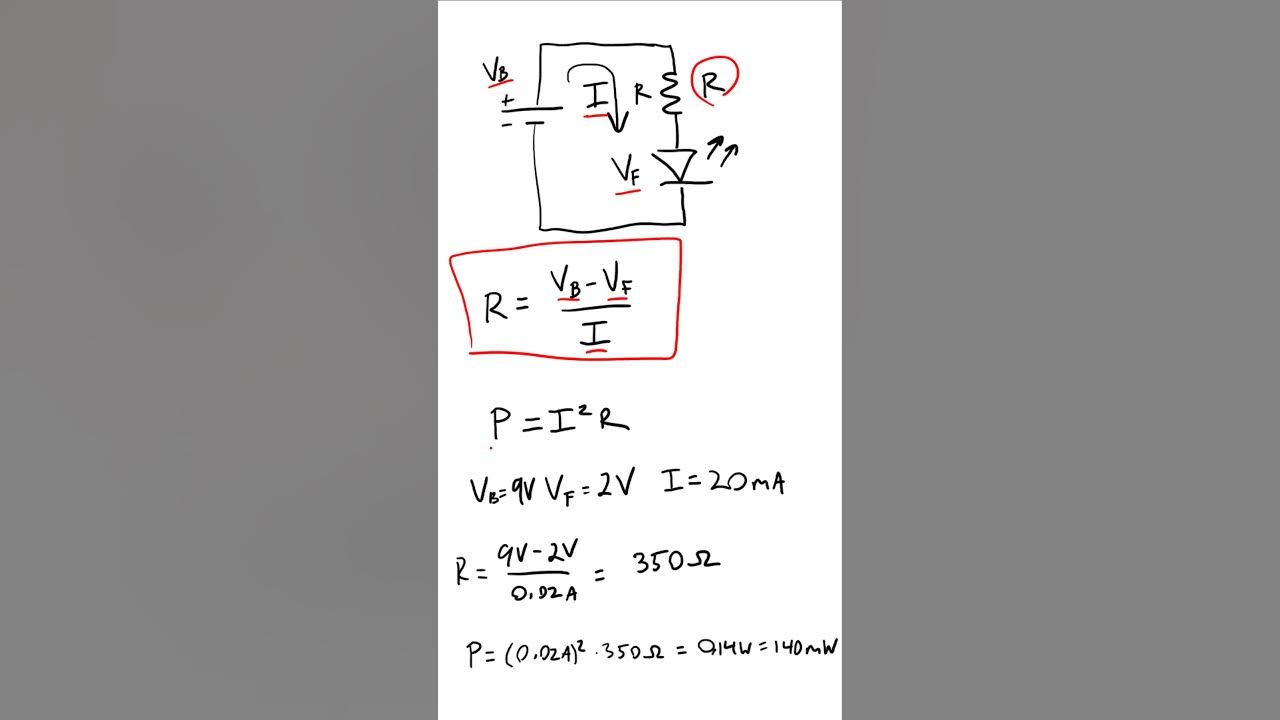 V_B
+
-
I
R
R
V_F
R = (V_B - V_F) / I
P = I² R
V_B = 9V V_F = 2V I = 20mA
R = (9V - 2V) / 0.02A = 350Ω
P = (0.02A)² · 350Ω = 0.14W = 140mW